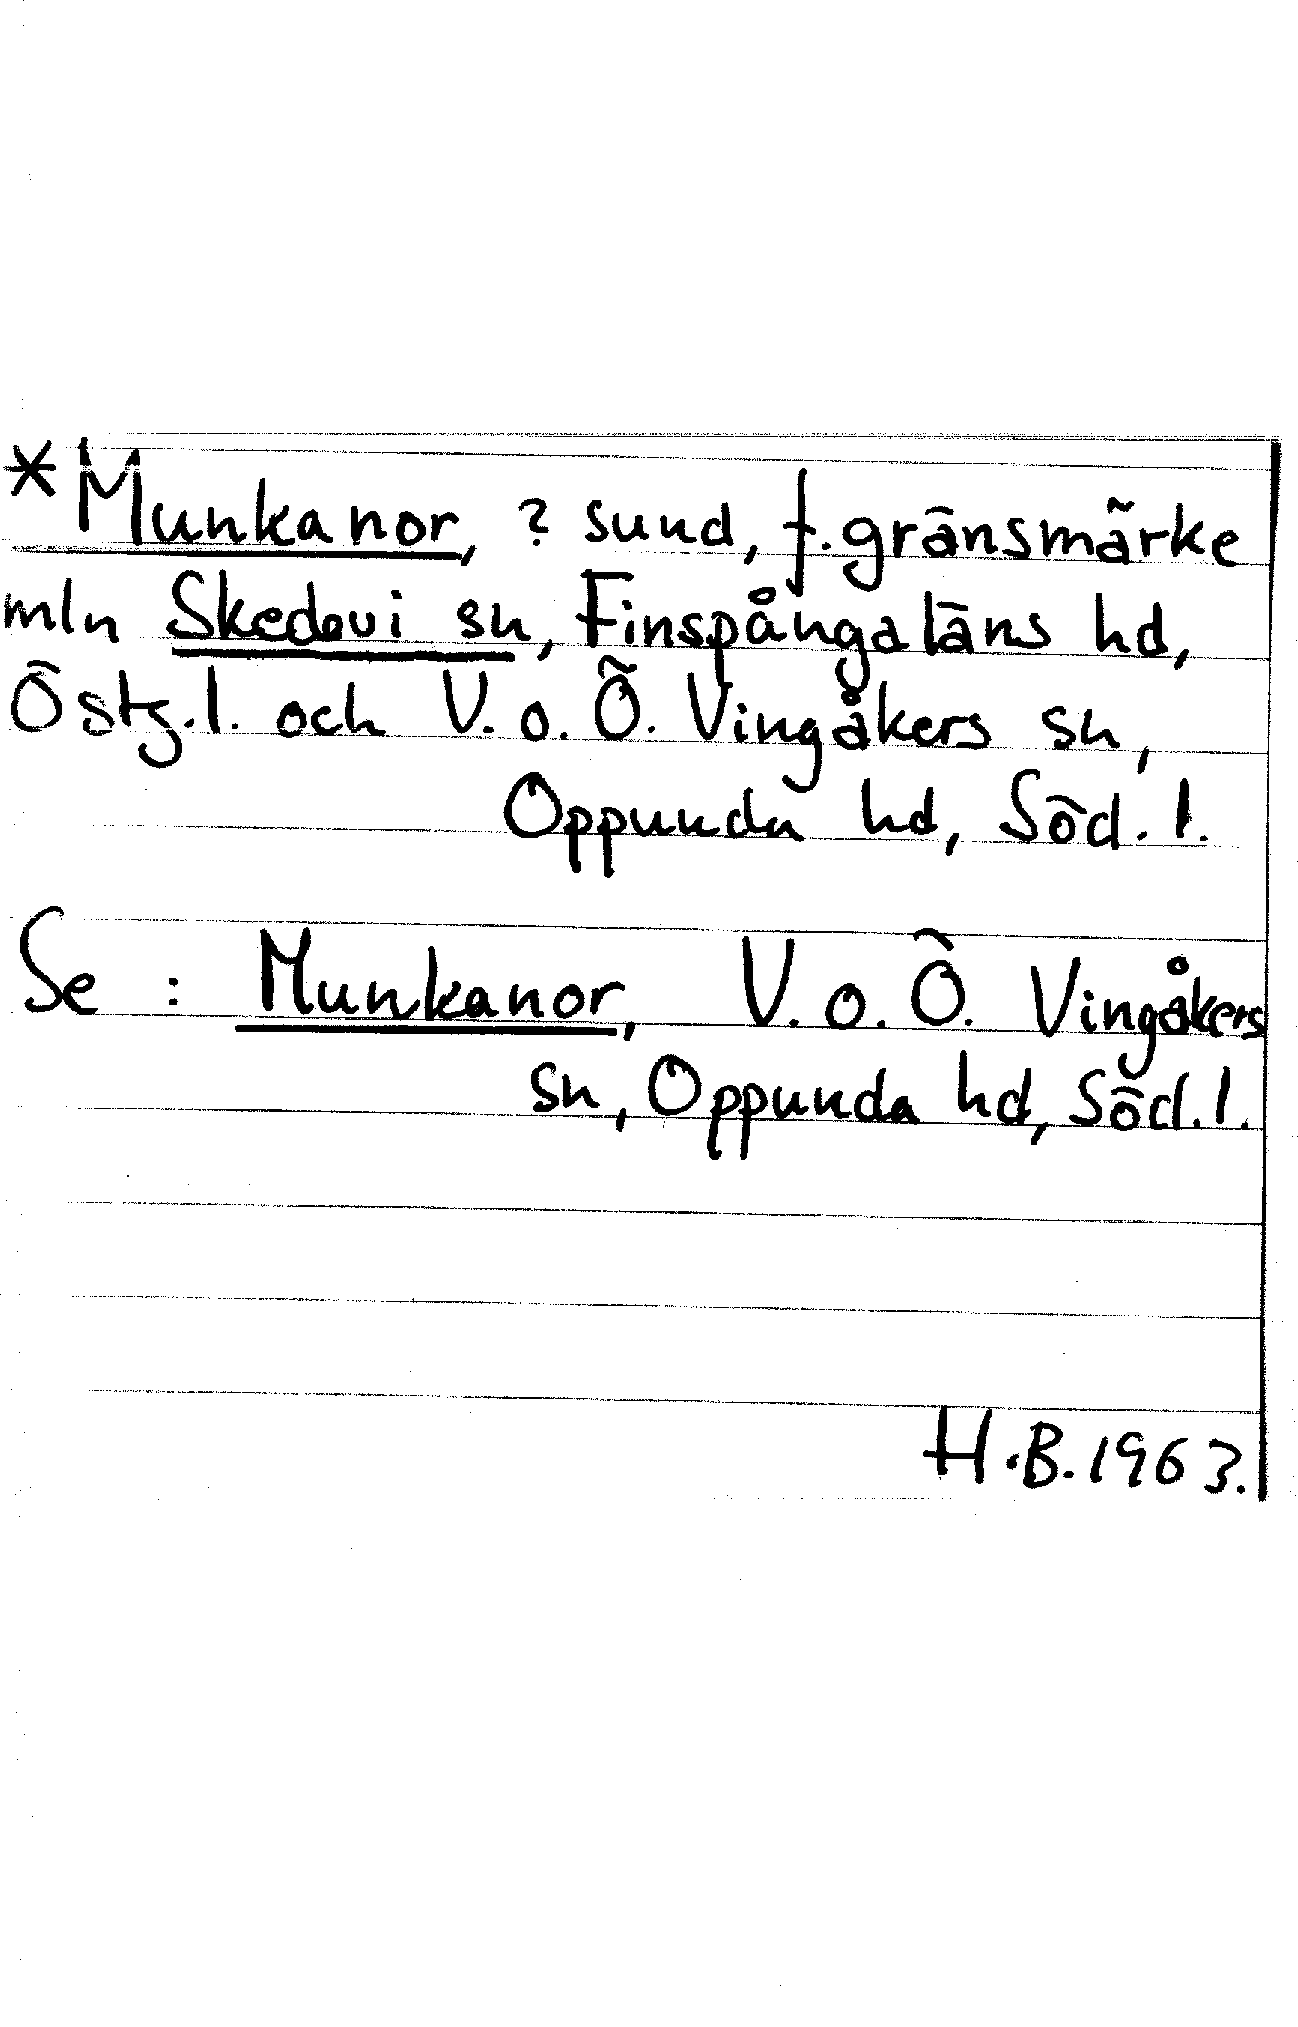 *Munkanor, ? sund, f. gränsmärke
mln Skedevi sn, Finspånga läns hd,
Östg. l. och V. o. Ö. Vingåkers sn,
Oppunda hd, Söd. l.
Se : Munkanor, V. o. Ö. Vingåkers
sn, Oppunda hd, Söd. l.
H.B. 1963.